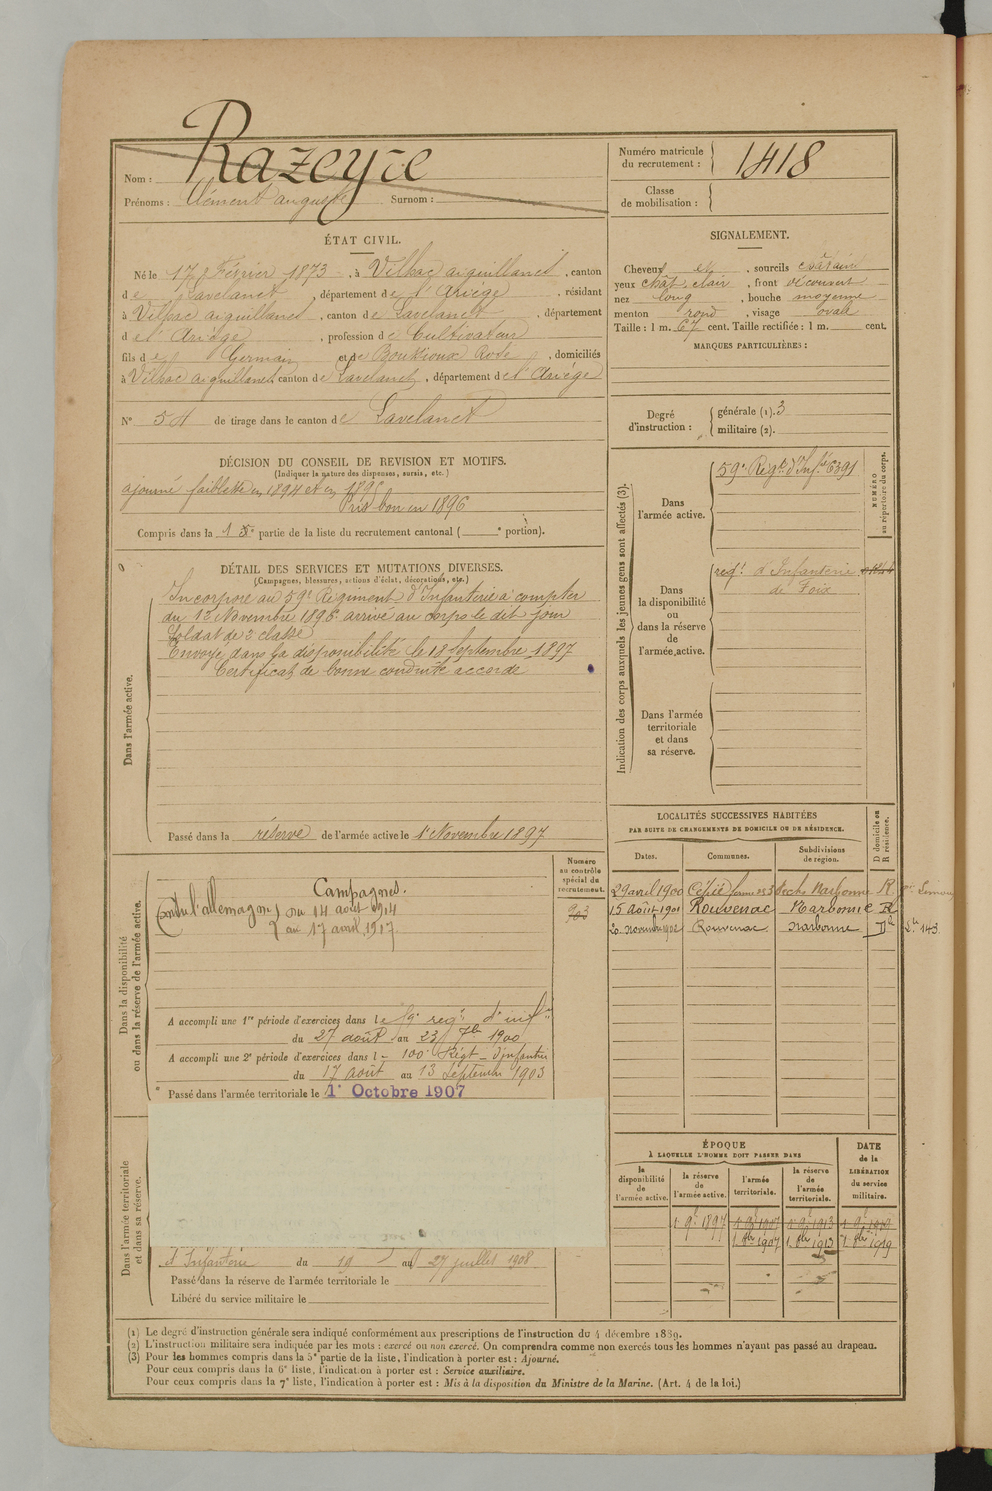 Nom : Razeyre
Prénoms : Clément auguste Surnom :
Numéro matricule du recrutement : 1418
Classe de mobilisation :
ÉTAT CIVIL.
Né le 17 Février 1873, à Vilhac aiguillanes, canton
de Lavelanet, département de l'Ariège, résidant
à Vilhac aiguillanes, canton de Lavelanet, département
de l'Ariège, profession de Cultivateur
fils de Germain et de Rose, domiciliés
à Vilhac aiguillanes, canton de Lavelanet, département de l'Ariège
N° 54 de tirage dans le canton de Lavelanet
SIGNALEMENT.
Cheveux et, sourcils châtain
yeux chât. clair, front découvert
nez long, bouche moyenne
menton rond, visage ovale
Taille : 1 m. 67 cent. Taille rectifiée : 1 m. cent.
MARQUES PARTICULIÈRES :
Degré d'instruction : générale (1). 3
militaire (2).
DÉCISION DU CONSEIL DE REVISION ET MOTIFS.
(Indiquer la nature des dispenses, sursis, etc.)
ajourné faiblesse en 1894 et en 1895
Pris bon en 1896
Compris dans la 1e partie de la liste du recrutement cantonal ( e portion).
DÉTAIL DES SERVICES ET MUTATIONS DIVERSES.
(Campagnes, blessures, actions d'éclat, décorations, etc.)
Dans l'armée active.
Incorporé au 59e Régiment d'Infanterie à compter
du 12 Novembre 1896 arrivé au corps le dit jour
Soldat de 2 classe
Envoyé dans la disponibilité le 18 Septembre 1897
Certificat de bonne conduite accordé
Passé dans la réserve de l'armée active le 1er Novembre 1897
Indication des corps auxquels les jeunes gens sont affectés (3).
NUMÉRO au répertoire du corps.
Dans l'armée active.
59e Regt d'Infie 6391
Dans la disponibilité ou dans la réserve de l'armée active.
regt d'Infanterie
de Foix
Dans l'armée territoriale et dans sa réserve.
LOCALITÉS SUCCESSIVES HABITÉES
PAR SUITE DE CHANGEMENTS DE DOMICILE OU DE RÉSIDENCE.
Dates. Communes. Subdivisions de région. D domicile ou R résidence.
29 avril 1900 Cépie Narbonne R
15 Août 1901 Rouvenac Narbonne R
20 novembre 1902 Rouvenac Narbonne D
Dans la disponibilité ou dans la réserve de l'armée active.
Numéro au contrôle spécial du recrutement.
903
Campagnes.
Contre l'allemagne du 14 août 1914
au 17 avril 1917
A accompli une 1re période d'exercices dans le 9e regt d'infie
du 27 août au 23 7bre 1900
A accompli une 2e période d'exercices dans l 100e Régt d'infanterie
du 17 août au 13 Septembre 1903
Passé dans l'armée territoriale le 1er Octobre 1907
Dans l'armée territoriale et dans sa réserve.
d'Infanterie du 19 au 27 juillet 1908
Passé dans la réserve de l'armée territoriale le
Libéré du service militaire le
ÉPOQUE
À LAQUELLE L'HOMME DOIT PASSER DANS
DATE de la LIBÉRATION du service militaire.
la disponibilité de l'armée active. la réserve de l'armée active. l'armée territoriale. la réserve de l'armée territoriale.
1 9bre 1897 1 9bre 1907 1 9bre 1913 1 9bre 1919
1 8bre 1907 1 8bre 1913 1 8bre 1919
(1) Le degré d'instruction générale sera indiqué conformément aux prescriptions de l'instruction du 4 décembre 1889.
(2) L'instruction militaire sera indiquée par les mots : exercé ou non exercé. On comprendra comme non exercés tous les hommes n'ayant pas passé au drapeau.
(3) Pour les hommes compris dans la 5e partie de la liste, l'indication à porter est : Ajourné.
Pour ceux compris dans la 6e liste, l'indication à porter est : Service auxiliaire.
Pour ceux compris dans la 7e liste, l'indication à porter est : Mis à la disposition du Ministre de la Marine. (Art. 4 de la loi.)